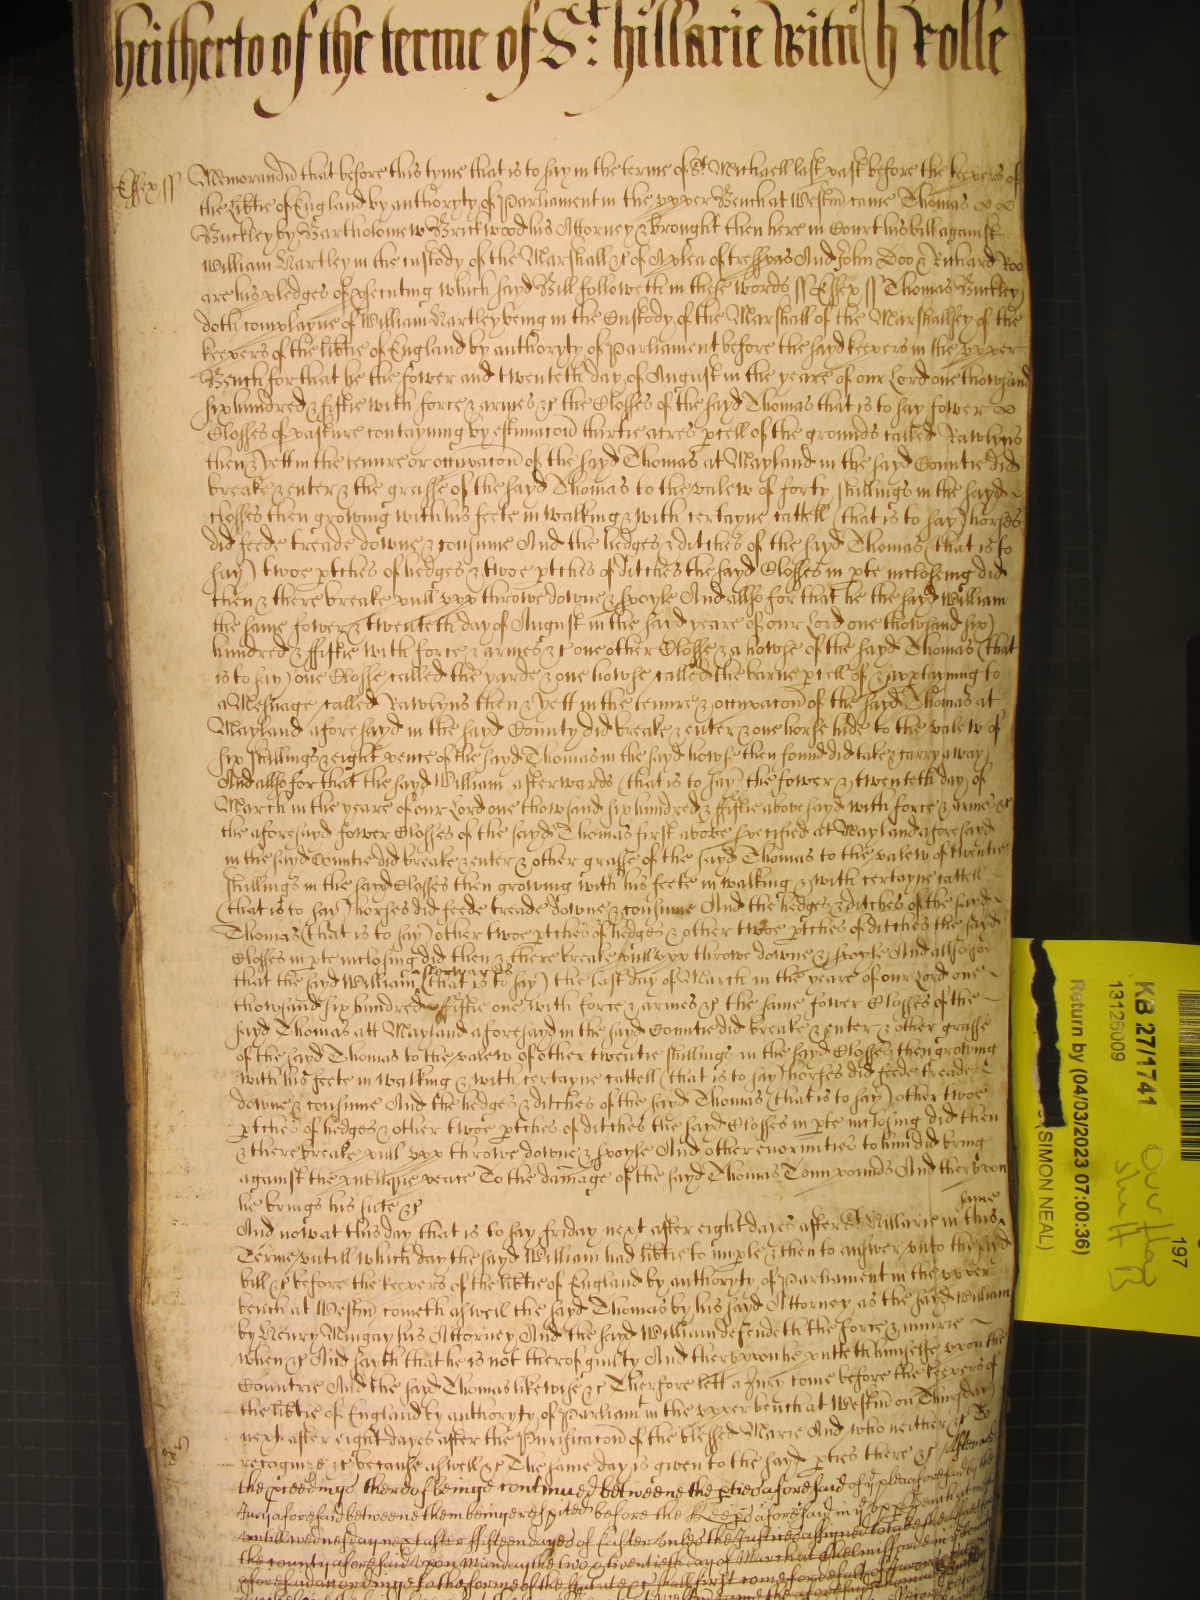 heitherto of the terme of St. hillarie witn h Rolle
Essex ss Memorandm that before this tyme that is to say in the terme of St Michaell last past before the keepers of
the libtie of England by authoryty of Parliament in the upper Bench at Westm came Thomas
Buckley by Bartholomew Brickwood his Attorney & brought then here in Court his bill against
William Hartley in the custody of the Marshall &c of A plea of tresspas And John Doo & Richard Roo
are his pledges of psecuting which sayd Bill followeth in these words ss Essex ss Thomas Buckley
doth complayne of William Hartley being in the Custody of the Marshall of the Marshallsey of the
keepers of the libtie of England by authoryty of Parliament before the sayd keepers in the upper
Bench for that he the fower and twenteth day of August in the yeare of our Lord one thowsand
six hundred & fiftie with force & armes &c the Closses of the sayd Thomas that is to say fower
Closses of pasture contayning by estimacon thirtie acres pcell of the grounds called Rawlyns
then & yett in the tenure or occupacon of the sayd Thomas at Mayland in the sayd Countie did
breake & enter & the grasse of the sayd Thomas to the valew of forty shillings in the sayd
closses then growing with his feete in walking & with certayne cattell (that is to say) horses
did feede treade downe & consume And the hedges & ditches of the sayd Thomas (that is to
say) twoe ptches of hedges & twoe ptches of ditches the sayd Closses in pte inclosing did
then & there breake pull upp throwe downe & spoyle And allso for that he the sayd William
the same fower & twenteth day of August in the sayd yeare of our Lord one thowsand six
hundred & fiftie with force & armes &c one other Closse & a howse of the sayd Thomas (that
is to say) one Closse called the yarde & one howse called the barne pcell of & apptayning to
a Messuage called Rawlyns then & yett in the tenure & occupacon of the sayd Thomas at
Mayland aforesayd in the sayd County did breake & enter & one horse hide to the valew of
six shillings & eight pence of the sayd Thomas in the sayd howse then found did take & carry away
And allso for that the sayd William afterwards (that is to say) the fower & twenteth day of
March in the yeare of our Lord one thowsand six hundred & fiftie abovesayd with force & armes &c
the aforesayd fower Closses of the sayd Thomas first above specified at Mayland aforesayd
in the sayd Countie did breake & enter & other grasse of the sayd Thomas to the valew of twentie
shillings in the sayd Closses then growing with his feete in walking & with certayne cattell
(that is to say) horses did feede treade downe & consume And the hedges & ditches of the sayd
Thomas (that is to say) other twoe ptches of hedges & other twoe ptches of ditches the sayd
Closses in pte inclosing did then & there breake pull upp throwe downe & spoyle And allso for
that the sayd William afterwards (that is to say) the last day of March in the yeare of our Lord one
thowsand six hundred fiftie one with force & armes &c the same fower Closses of the
sayd Thomas att Mayland aforesayd in the sayd Countie did breake & enter & other grasse
of the sayd Thomas to the valew of other twentie shillings in the sayd Closses then growing
with his feete in walking & with certayne cattell (that is to say) horses did feede treade
downe & consume And the hedges & ditches of the sayd Thomas (that is to say) other twoe
ptches of hedges & other twoe ptches of ditches the sayd Closses in pte inclosing did then
& there breake pull upp throwe downe & spoyle And other enormities to him did bring
against the publique peace To the damage of the sayd Thomas Tenn pounds And therupon
he brings his sute &c
And now at this day that is to say Friday next after eight dayes after St Hillarie in this same
Terme untill which day the sayd William had libtie to imple & then to answer unto the sayd
bill &c before the keepers of the libtie of England by authoryty of Parliament in the upper
bench at Westm cometh aswell the sayd Thomas by his sayd Attorney as the sayd William
by Henry Mingay his Attorney And the sayd William defendeth the force & iniurie
when &c And sayth that he is not therof guilty And therupon he putteth himselfe upon the
Countrie And the sayd Thomas likewise &c Therfore lett a Jury come before the keepers of
the libtie of England by authoryty of Parliam in the upper bench at Westm on Thursday
next after eight dayes after the Purificacon of the blessed Marie And who neither &c To
recognize &c because aswell &c The same day is given to the sayd pties there &c
the pceedings therof beinge continued betweene the pties aforesaid of ye plea aforesaid by the
Jury aforesaid betweene them beinge respited before the Keeps aforesaid in ye upp bench at
untill wednesday next after fifteen dayes of Easter unles the Justices assigned to take the Assizes in
the county aforesaid upon Munday the two & twentieth day of March at Chelmisforde in
aforesaid accordinge to the forme of the statute &c shall first come for default of
KB 27/1741
13126009
Return by (04/03/2023 07:00:36)
(SIMON NEAL)
197